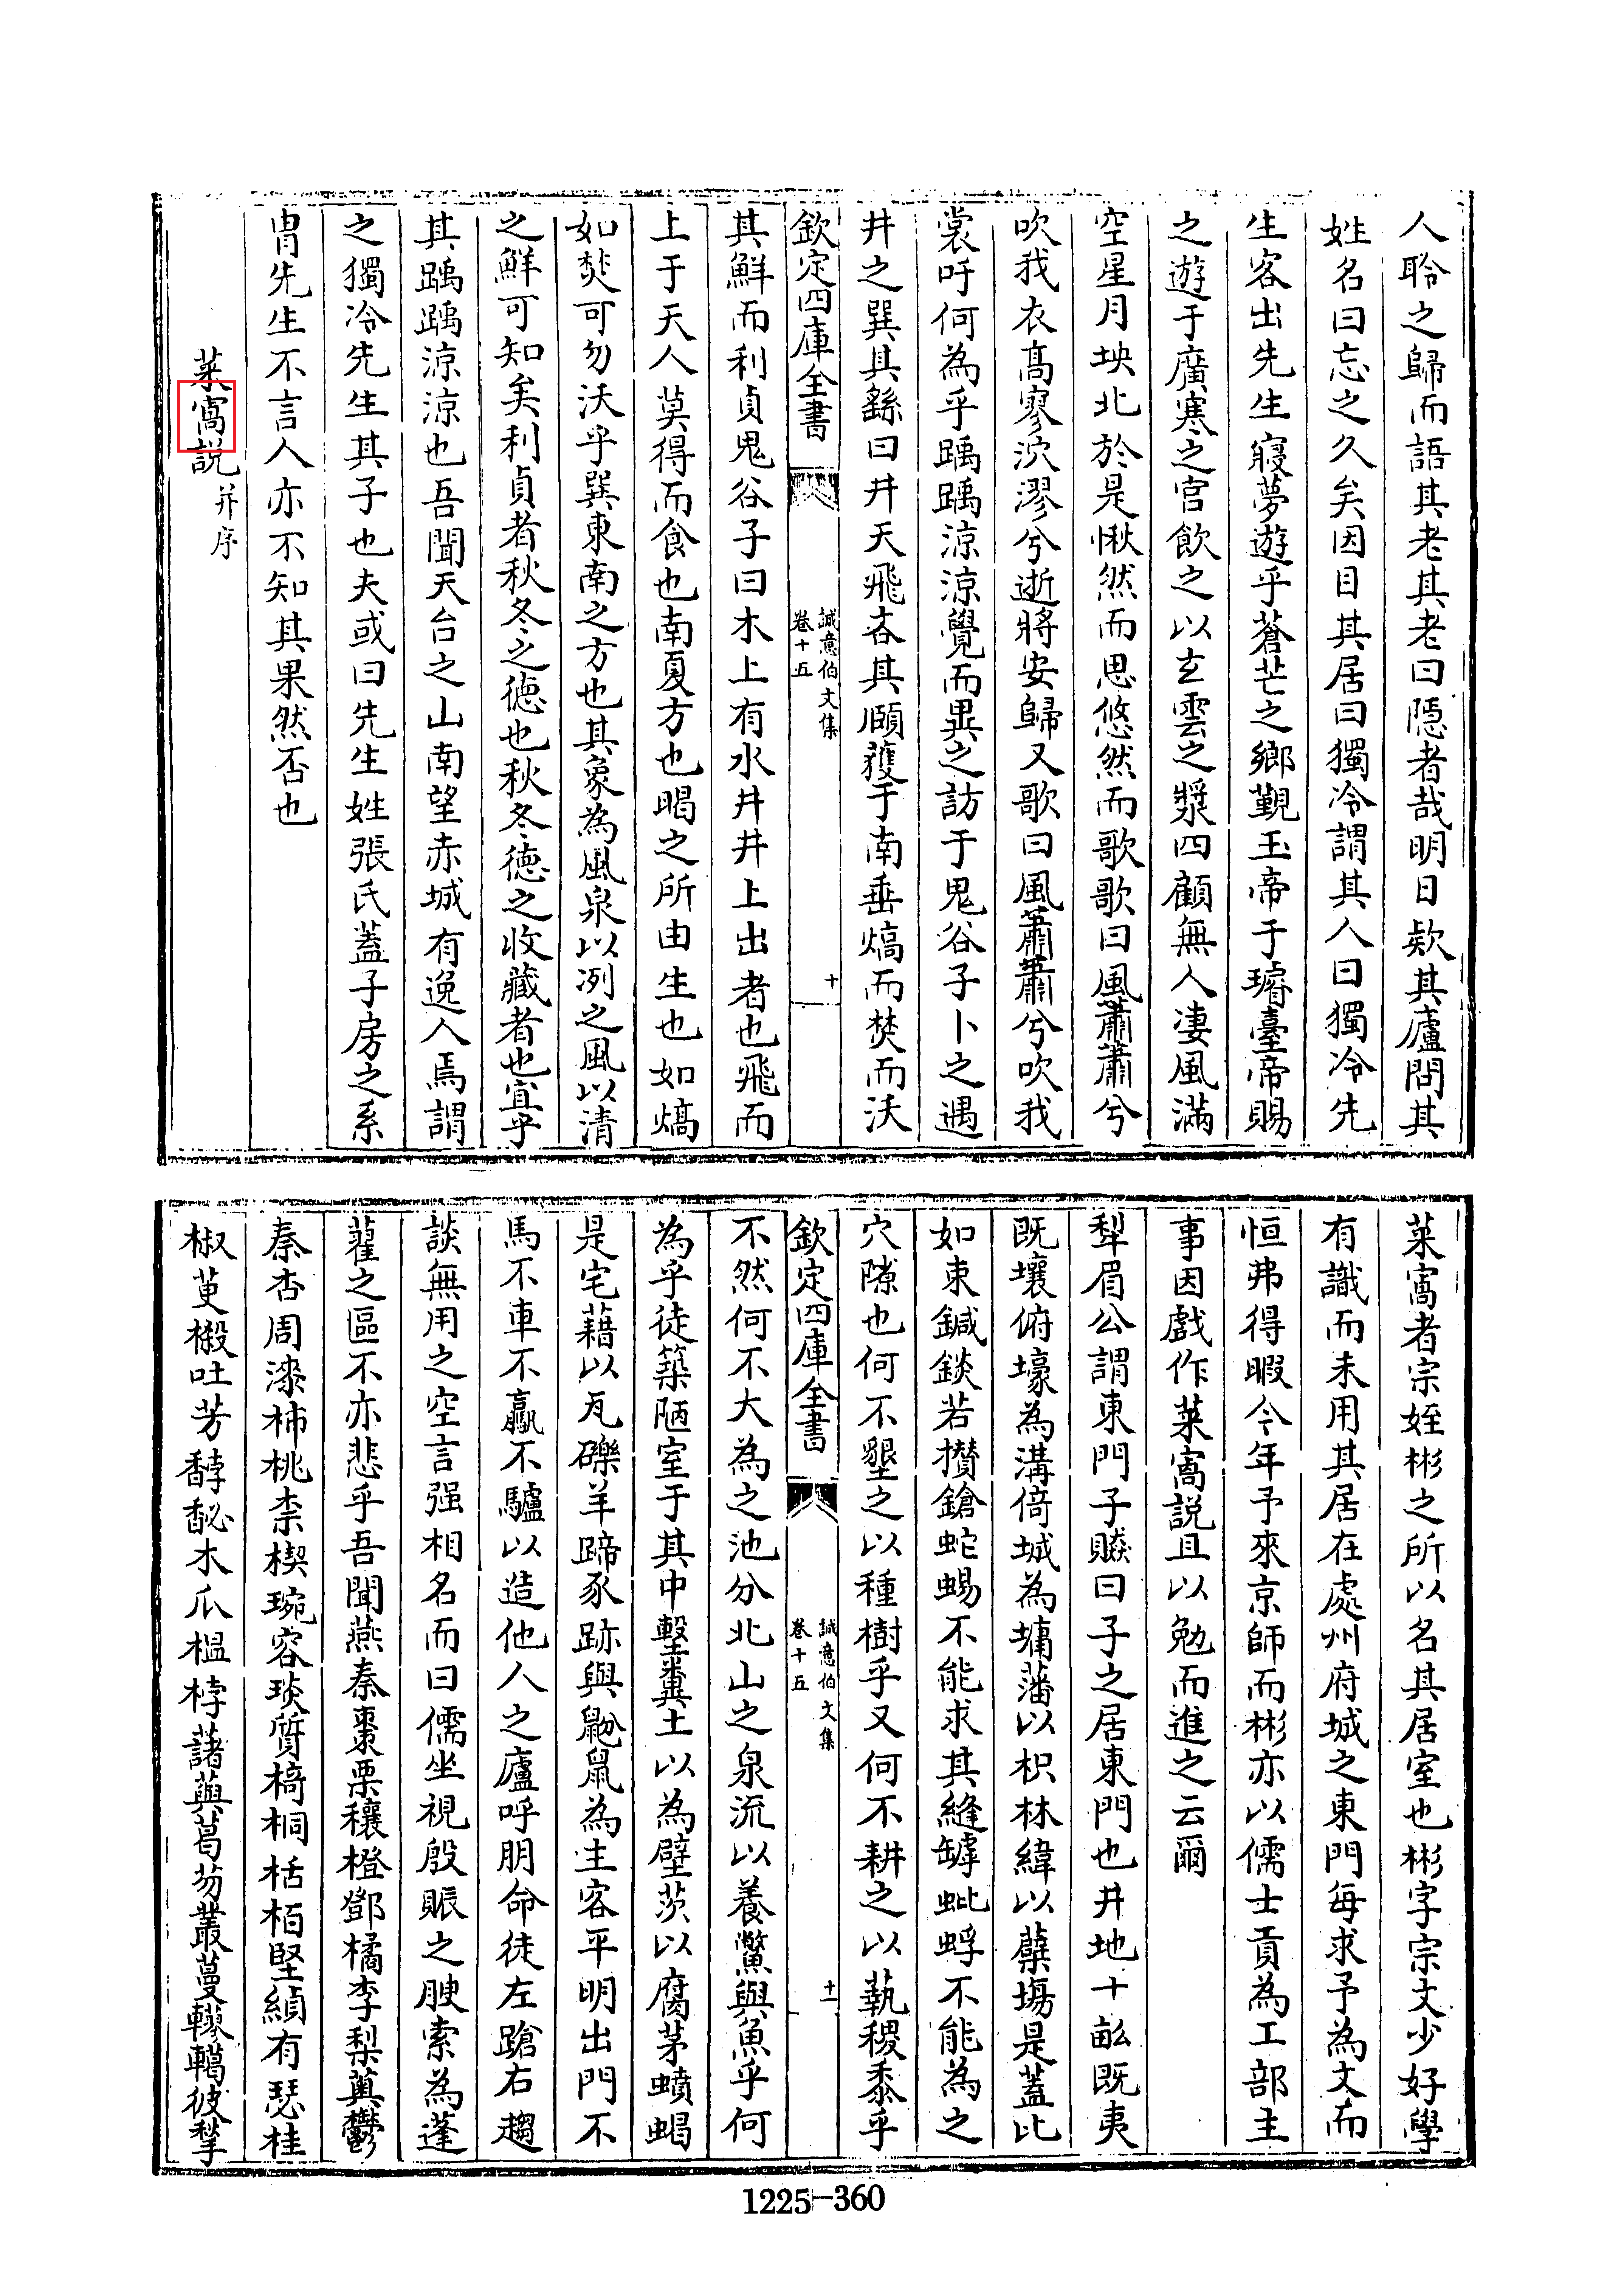 人聆之歸而語其老其老曰隱者哉明日欵其廬問其
姓名曰忘之久矣因目其居曰獨冷謂其人曰獨冷先
生客出先生寢夢遊乎蒼茫之鄉覲玉帝于璿臺帝賜
之遊于廣寒之宫飲之以玄雲之漿四顧無人凄風滿
空星月坱北於是愀然而思悠然而歌歌曰風蕭蕭兮
吹我衣髙寥泬漻兮逝將安歸又歌曰風蕭蕭兮吹我
裳吁何為乎踽踽涼涼覺而異之訪于鬼谷子卜之遇
井之巽其繇曰井天飛吝其頋獲于南垂熇而焚而沃
欽定四庫全書
誠意伯文集
卷十五
十
其鮮而利貞鬼谷子曰木上有水井井上出者也飛而
上于天人莫得而食也南夏方也暍之所由生也如熇
如焚可勿沃乎巽東南之方也其象為風泉以冽之風以清
之鮮可知矣利貞者秋冬之徳也秋冬徳之收藏者也宜乎
其踽踽涼涼也吾聞天台之山南望赤城有逸人焉謂
之獨冷先生其子也夫或曰先生姓張氏蓋子房之系
胄先生不言人亦不知其果然否也
菜窩説
并序
菜窩者宗姪彬之所以名其居室也彬字宗文少好學
有識而未用其居在處州府城之東門每求予為文而
恒弗得暇今年予來京師而彬亦以儒士貢為工部主
事因戲作菜窩説且以勉而進之云爾
犂眉公謂東門子賸曰子之居東門也井地十畝既夷
既壤俯壕為溝倚城為墉藩以枳林緯以蘖塲是蓋比
如束鍼錟若攢鎗蛇蜴不能求其縫罅蚍蜉不能為之
穴隙也何不墾之以種樹乎又何不耕之以蓺稷黍乎
欽定四庫全書
誠意伯文集
卷十五
十一
不然何不大為之池分北山之泉流以養鱉與魚乎何
為乎徒築陋室于其中墼糞土以為壁茨以腐茅蟦蝎
是宅藉以瓦礫羊蹄豕跡與鼢鼠為主客平明出門不
馬不車不驘不驢以造他人之廬呼朋命徒左蹌右趨
談無用之空言强相名而曰儒坐視殷賑之腴索為蓬
藋之區不亦悲乎吾聞燕秦棗栗穰橙鄧橘李梨薁鬱
秦杏周漆柿桃柰楔琬容琰質椅桐栝栢堅縝有瑟桂
椒茰樧吐芳馞馝木瓜榅桲藷藇葛芴叢蔓轇轕彼摮
1225-360